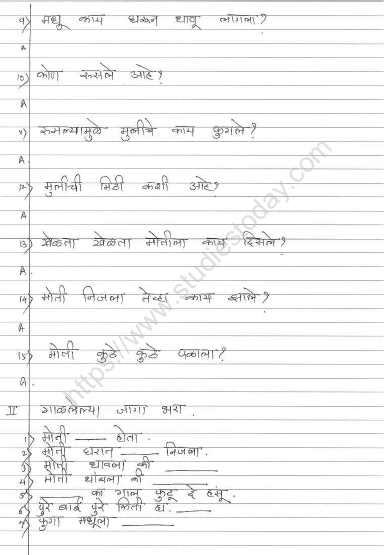 ९) मधू काय धरून धावू लागला?
A
१०) कोण रुसले आहे?
A
११) रुसल्यामुळे मुलीचे काय फुगले?
A.
१२) मुलीची मिठी कशी आहे?
A
१३) खेळता खेळता मोतीला काय दिसले?
A.
१४) मोती निजला तेव्हा काय झाले?
A
१५) मोती कुठे कुठे पळाला?
A.
II गाळलेल्या जागा भरा.
१) मोती ____ होता.
२) मोती घरात ____ निजला.
३) मोती धावला की ____
४) मोती थांबला की ____
५) ____ का गाल फुटू दे हसू.
६) पुरे बाई पुरे किती हा ____
७) फुगा मधूला ____
https://www.studiestoday.com